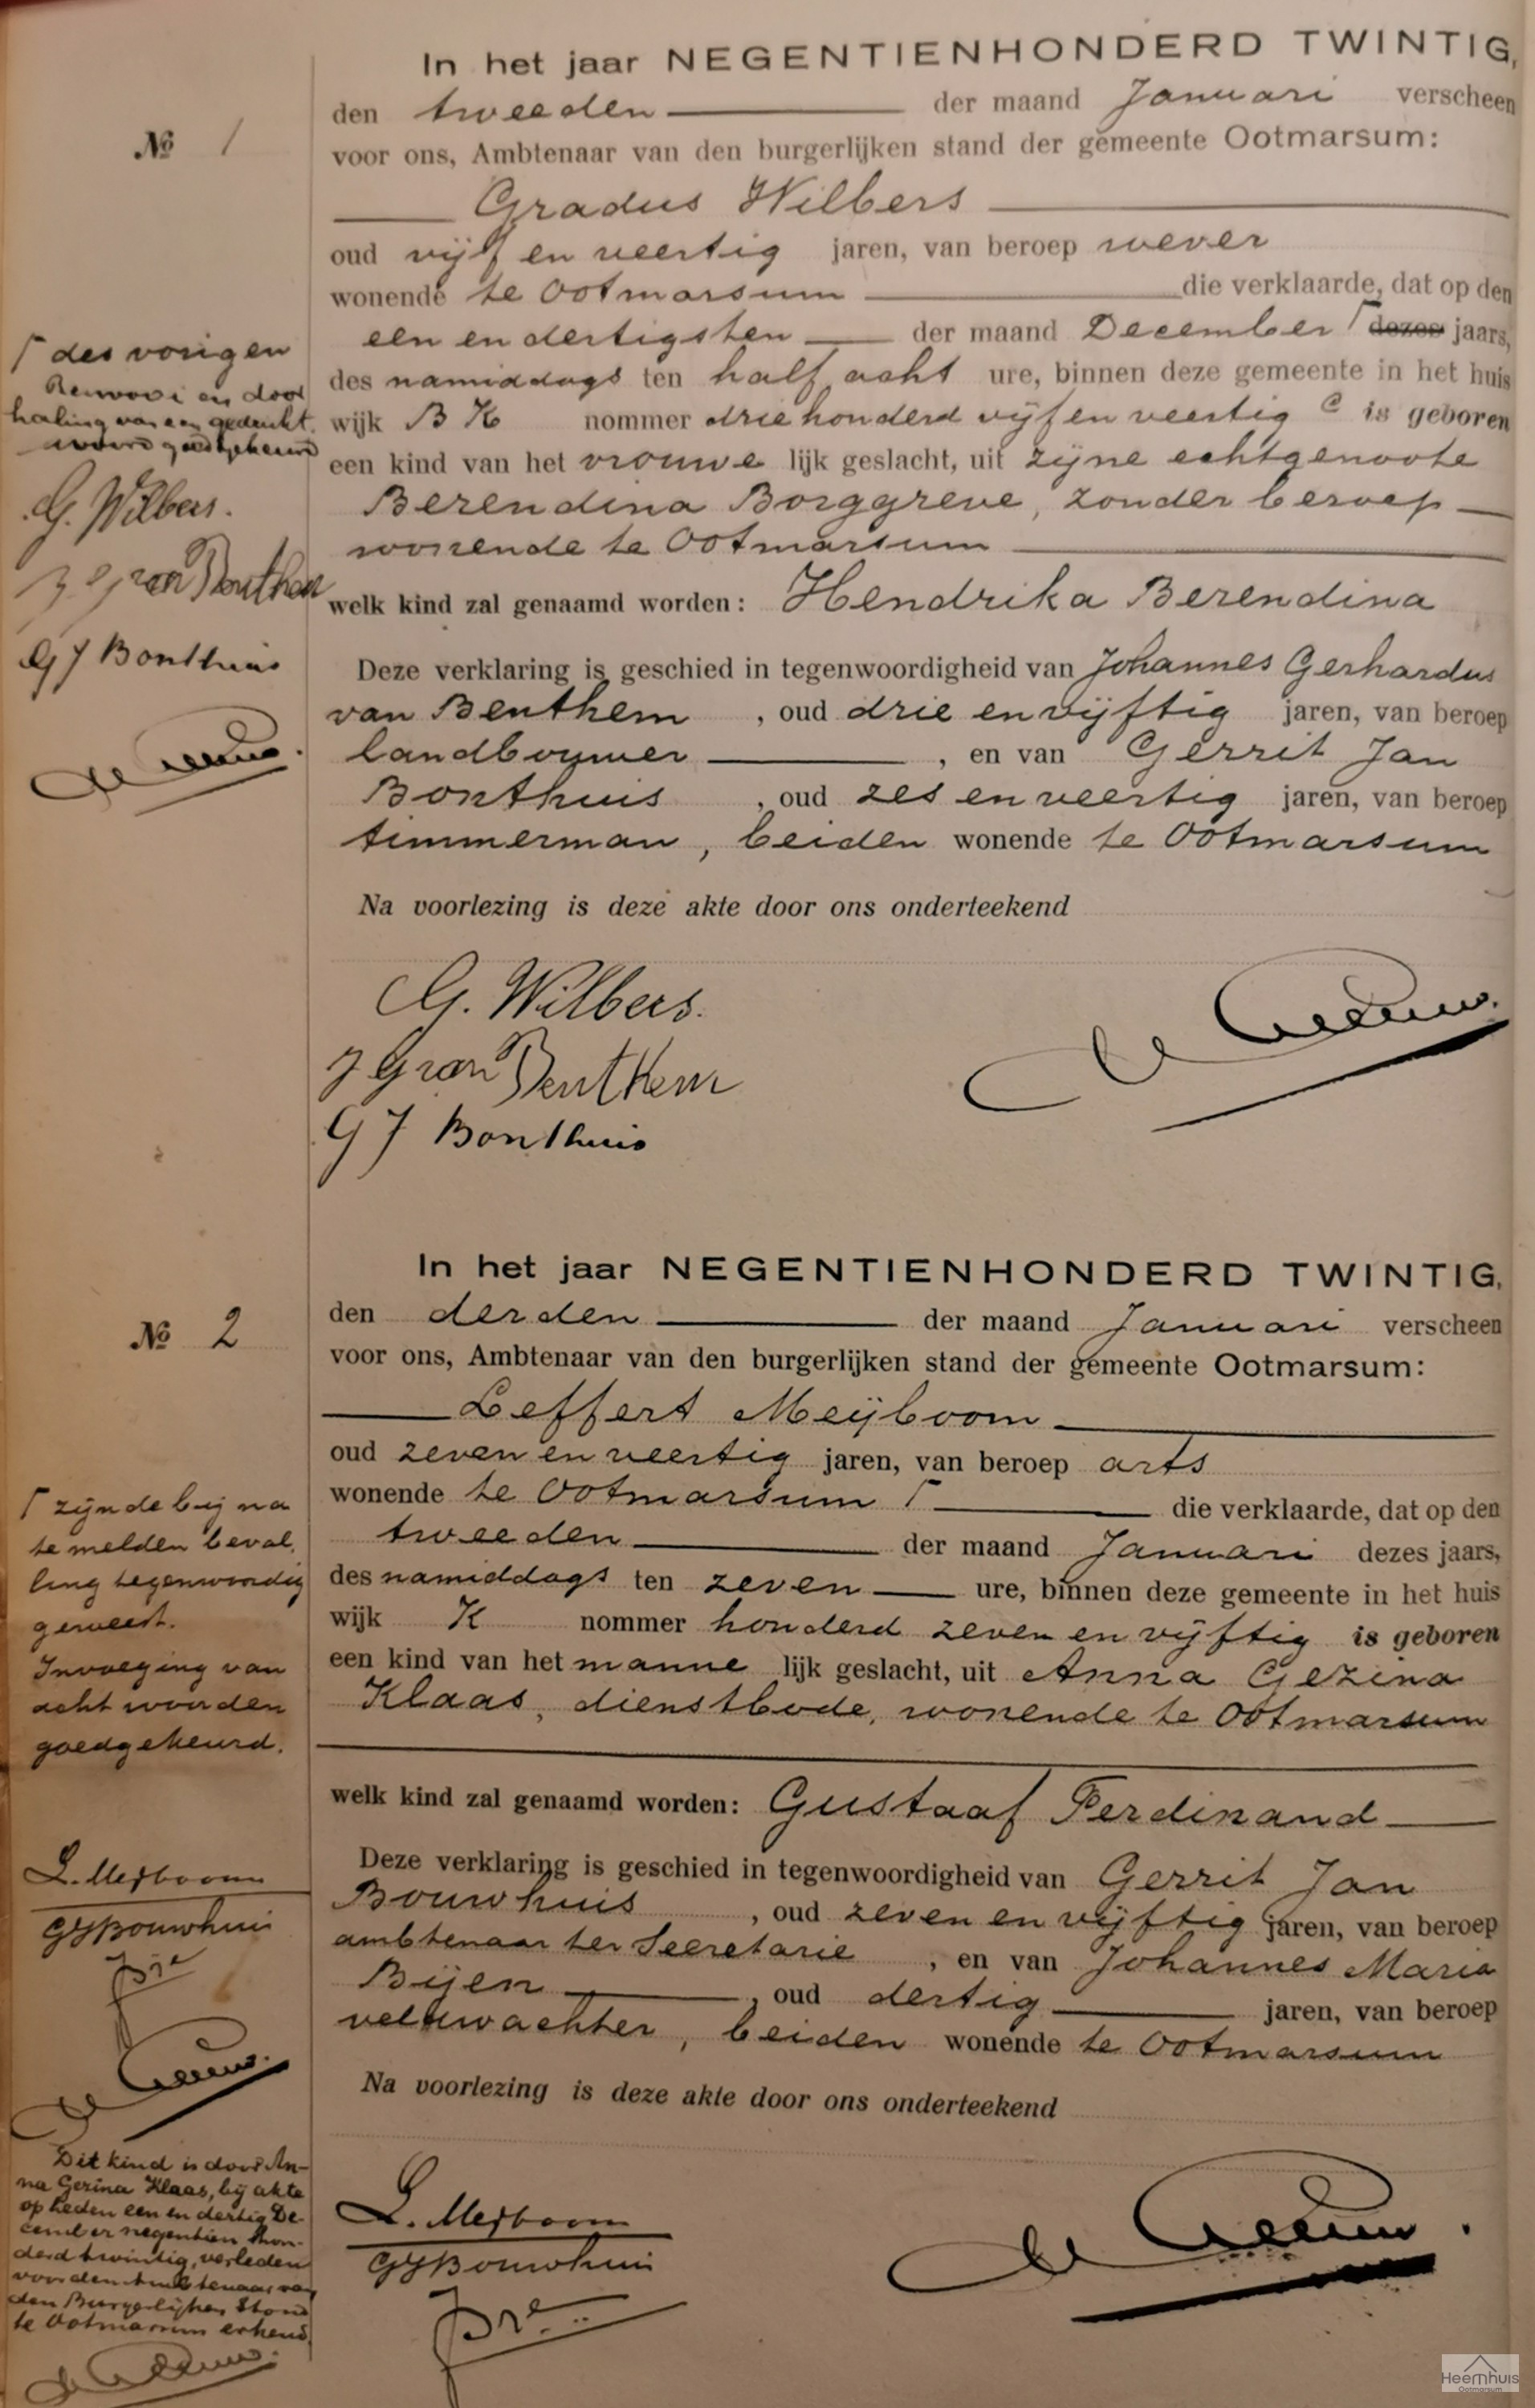 In het jaar NEGENTIENHONDERD TWINTIG,
den tweeden der maand Januari verscheen
No 1
voor ons, Ambtenaar van den burgerlijken stand der gemeente Ootmarsum:
Gradus Wilbers
oud vijf en veertig jaren, van beroep wever
wonende te Ootmarsum die verklaarde, dat op den
een en dertigsten der maand December ⌈ dezes jaars,
des namiddags ten half acht ure, binnen deze gemeente in het huis
wijk B K nommer drie honderd vijf en veertig C is geboren
een kind van het vrouwe lijk geslacht, uit zijne echtgenoote
Berendina Borggreve, zonder beroep
wonende te Ootmarsum
welk kind zal genaamd worden: Hendrika Berendina
Deze verklaring is geschied in tegenwoordigheid van Johannes Gerhardus
van Benthem, oud drie en vijftig jaren, van beroep
landbouwer, en van Gerrit Jan
Bonthuis, oud zes en veertig jaren, van beroep
timmerman, beiden wonende te Ootmarsum
Na voorlezing is deze akte door ons onderteekend
⌈ des vorigen
Renvooi en door
haling van een gedrukt
woord goedgekeurd
G. Wilbers.
J G van Benthem
GJ Bonthuis
G. Wilbers.
J G van Benthem
GJ Bonthuis
In het jaar NEGENTIENHONDERD TWINTIG,
den derden der maand Januari verscheen
No 2
voor ons, Ambtenaar van den burgerlijken stand der gemeente Ootmarsum:
Leffert Meijboom
oud zeven en veertig jaren, van beroep arts
wonende te Ootmarsum ⌈ die verklaarde, dat op den
tweeden der maand Januari dezes jaars,
des namiddags ten zeven ure, binnen deze gemeente in het huis
wijk K nommer honderd zeven en vijftig is geboren
een kind van het manne lijk geslacht, uit Anna Gezina
Klaas, dienstbode, wonende te Ootmarsum
welk kind zal genaamd worden: Gustaaf Ferdinand
Deze verklaring is geschied in tegenwoordigheid van Gerrit Jan
Bouwhuis, oud zeven en vijftig jaren, van beroep
ambtenaar ter Secretarie, en van Johannes Maria
Bijen, oud dertig jaren, van beroep
veldwachter, beiden wonende te Ootmarsum
Na voorlezing is deze akte door ons onderteekend
⌈ zijnde bij na
te melden beval,
ling tegenwoordig
geweest.
Invoeging van
acht woorden
goedgekeurd.
L. Meijboom
GJBouwhuis
Dit kind is door An-
na Gezina Klaas, bij akte
op heden een en dertig De-
cember negentien hon-
derd twintig, verleden
voor den Ambtenaar van
den Burgerlijken Stand
te Ootmarsum erkend.
L. Meijboom
GJBouwhuis
Heemhuis
Ootmarsum